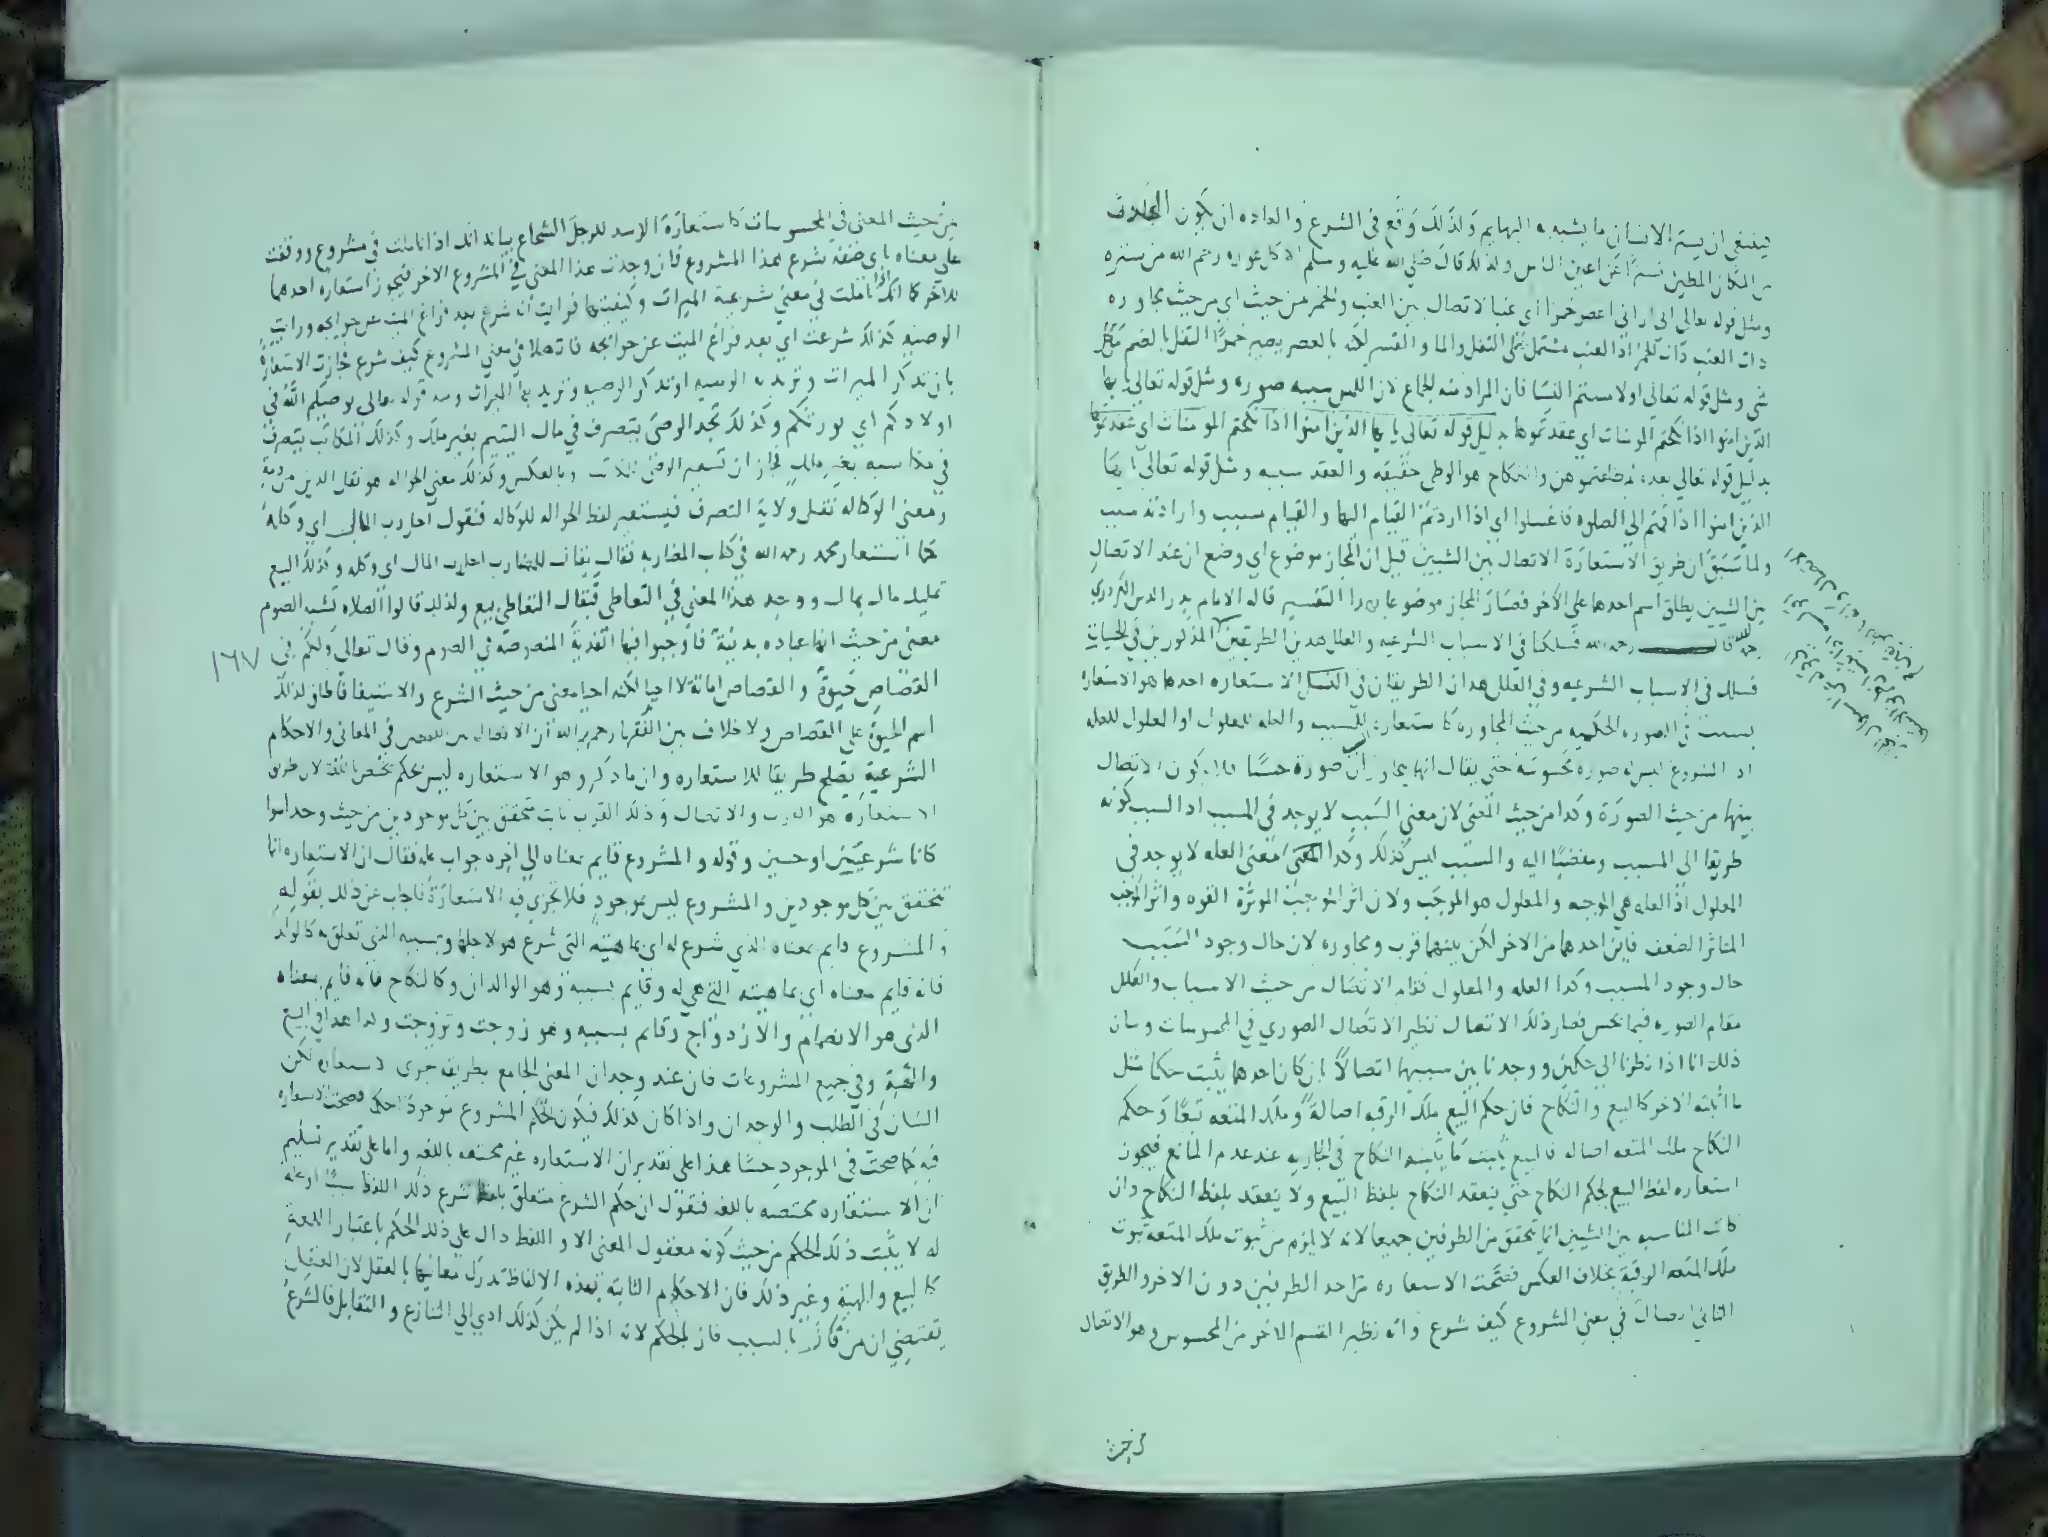 فينبغي ان يستر الانسان ما يشبه به البهايم ولذلك وقع في الشرع والعاده ان يكون الحدث
المكان المطمئن تسترا عن اعين الناس ولذلك قال صلى الله عليه وسلم
ومثل قوله تعالى اني اراني اعصر خمرا اي عنبا لاتصال بين العنب والخمر من حيث اي من حيث مجاوره
ذات العنب ذات الخمر اذ العنب مشتمل على الثفل والما والقشر لكنه بالعصر يصير خمرا الثفل بالضم
شي ومثل قوله تعالى او لامستم النسا فان المراد منه الجماع لان اللمس سببه صوره ومثل قوله تعالى يا ايها
الذين امنوا اذا نكحتم المومنات اي عقدتموها بدليل قوله تعالى يا ايها الذين امنوا اذا نكحتم المومنات اي عقدتموها
بدليل قوله تعالى بعده والنكاح هو الوطى حقيقه والعقد سببه ومثل قوله تعالى ايها
الذين امنوا اذا قمتم الى الصلوه فاغسلوا اي اذا اردتم القيام اليها والقيام مسبب وارادته سبب
ولما سبق ان طريق الاستعارة الاتصال بين الشيين قيل ان المجاز موضوع اي وضع ان عند الاتصال
بين الشيين يطلق اسم احدهما على الاخر فصار المجاز موضوعا بهذا التفسير قاله الامام بدر الدين الكردري
رحمه الله قال رحمه الله فسلكنا في الاسباب الشرعيه والعلل هذين الطريقين المذكورين في الحسيات
فسلك في الاسباب الشرعيه وفي العلل هذان الطريقان في الاستعاره احدهما هو الاستعارة
بسبب في الصوره الحكميه من حيث المجاوره كاستعارة السبب والعله للمعلول او المعلول للعله
اذ المشروع ليس له صورة محسوسة حتى يقال انهما يتجاوران صورة حسا فلا يكون الاتصال
بينهما من حيث الصورة وكذا من حيث المعنى لان معنى السبب لا يوجد في المسبب اذ السبب كونه
طريقا الى المسبب ومفضيا اليه والمسبب ليس كذلك وكذا معنى العله لا يوجد في
المعلول اذ العله هي الموجبه والمعلول هو الموجب ولان اثر الموجب الموثرة القوه واثر الموجب
المتاثر الضعف فاين احدهما من الاخر لكن بينهما قرب ومجاوره لان حال وجود السبب
حال وجود المسبب وكذا العله والمعلول فقام الاتصال من حيث الاسباب والعلل
مقام الصوره فيما يحس فصار ذلك الاتصال نظير الاتصال الصوري في المحسوسات وبيان
ذلك انا اذا نظرنا الى حكمين ووجدنا بين سببيهما اتصالا بان كان احدهما يثبت حكما مثل
ما اثبته الاخر كالبيع والنكاح فان حكم البيع ملك الرقبه اصالة وملك المتعه تبعا وحكم
النكاح ملك المتعه اصاله فالبيع يثبت ما يثبته النكاح في الجاريه عند عدم المانع فيجوز
استعاره لفظ البيع لحكم النكاح حتى ينعقد النكاح بلفظ البيع ولا ينعقد بلفظ النكاح وان
كانت المناسبه بين الشيين انما تحقق من الطرفين جميعا لانه لا يلزم من ثبوت ملك المتعه ثبوت
ملك الرقبة بخلاف العكس فصحت الاستعاره من احد الطرفين دون الاخر والطريق
الثاني اتصال في معنى المشروع كيف شرع وانه نظير القسم الاخر من المحسوس وهو الاتصال
من حيث
من حيث المعنى في المحسوسات كاستعارة الاسد للرجل الشجاع بيانه انك اذا تاملت في مشروع ووقفت
على معناه باي صفة شرع هذا المشروع فان وجدت هذا المعنى في المشروع الاخر فيجوز استعارة احدهما
للاخر كما انك اذا تاملت في معنى شرعية الميراث وكيفيتها فرايت انه شرع بعد فراغ الميت عن حوايجه ورايت
الوصية كذلك شرعت اي بعد فراغ الميت عن حوايجه فاتصلا في معنى المشروع كيف شرع فجازت الاستعارة
بان تذكر الميراث وتريد به الوصيه او تذكر الوصيه وتريد بها الميراث ومنه قوله تعالى يوصيكم الله في
اولادكم اي يورثكم وكذلك تجد الوصى يتصرف في مال اليتيم بغير ملك وكذلك المكاتب يتصرف
في مكاسبه بغير ملك فجاز ان تسمى وبالعكس وكذلك معنى الحواله هو نقل الدين من ذمة
ومعنى الوكاله نقل ولاية التصرف فيستعير لفظ الحواله للوكاله فنقول احل رب المال اي وكله
كما استعار محمد رحمه الله في كتاب المضاربه فقال يقال للمضارب احل رب المال اي وكله وكذلك البيع
تمليك مال بمال ووجد هذا المعنى في التعاطي فيقال التعاطي بيع ولذلك قالوا الصلاه تشبه الصوم
معنى من حيث انها عباده بدنية فاوجبوا فيها الفدية المنصوصة في الصوم وقال تعالى ولكم في
١٦٧
القصاص حيوة والقصاص اماتة لا احيا لكنه احيا معنى من حيث الشرع والاستيفا فاطلق لذلك
اسم الحيوة على القصاص ولا خلاف بين الفقها رحمهم الله ان الاتصال في المعاني والاحكام
الشرعية يصلح طريقا للاستعاره وان ما ذكر وهو الاستعاره ليس بحكم يختص باللغة لان طريق
الاستعاره هو القرب والاتصال وذلك القرب ثابت متحقق بين كل موجودين من حيث وجدا سوا
كانا شرعيين او حسين وقوله والمشروع قايم بمعناه الى اخره جواب عما يقال ان الاستعاره انما
تتحقق بين كل موجودين والمشروع ليس بموجود فلا تجري فيه الاستعارة فاجاب عن ذلك بقوله
والمشروع قايم بمعناه الذي شرع له اي بماهيته التي شرع هو لاجلها وبسببه الذي تعلق به كالولد
فانه قايم بمعناه اي بماهيته التي هي له وقايم بسببه وهو الوالدان وكالنكاح فانه قايم بمعناه
الذي هو الانضمام والازدواج وقايم بسببه وهو زوجت وتزوجت وكذا هذا في البيع
والهبة وفي جميع المشروعات فان عند وجدان المعنى الجامع بطريقه جرى الاستعاره لكن
الشان في الطلب والوجدان واذا كان كذلك فيكون الحكم المشروع موجودا حكما فصحت الاستعارة
فيه كما صحت في الموجود حسا هذا على تقدير ان الاستعاره غير مختصه باللغه واما على تقدير تسليم
ان الاستعاره مختصه باللغه فنقول ان حكم الشرع متعلق بلفظ شرع ذلك اللفظ سببا او علة
له لا يثبت ذلك الحكم من حيث كونه معقول المعنى الا واللفظ دال على ذلك الحكم باعتبار اللغة
كالبيع والهبة وغير ذلك فان الاحكام الثابتة بهذه الالفاظ تدرك معانيها بالعقل لان العقل
يقتضي ان من فاز بالسبب فاز بالحكم لانه اذا لم يكن كذلك ادى الى التنازع والتقابل فالشرع